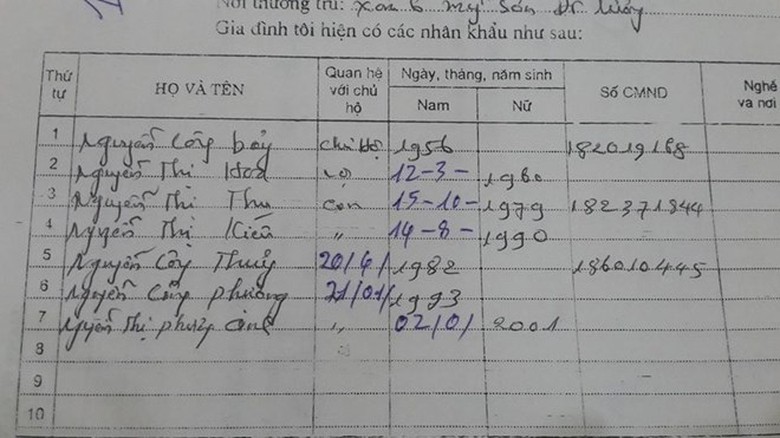 Nơi thường trú: xóm 6 mỹ sơn Đô lương
Gia đình tôi hiện có các nhân khẩu như sau:
Thứ tự HỌ VÀ TÊN Quan hệ với chủ hộ Ngày, tháng, năm sinh Nam Nữ Số CMND Nghề và nơi
1 Nguyễn Công bảy chủ hộ 1956 182019168
2 Nguyễn Thị Hoà vợ 12-3- 1960
3 Nguyễn Thị Thu con 15-10- 1979 182371844
4 Nguyễn Thị Kiều 〃 14-8- 1990
5 Nguyễn Công Thuỷ 20/4/ 1982 186010445
6 Nguyễn Công phương 21/01/ 1993
7 Nguyễn Thị phương 〃 02/01/ 2001
8
9
10